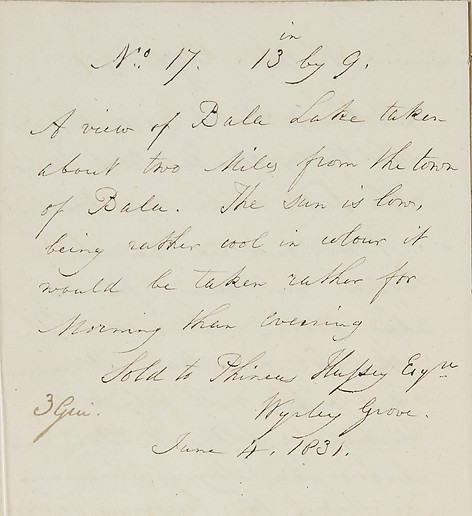 No. 17. 13 in by 9.
A view of Bala Lake taken
about two Miles from the town
of Bala. The sun is low,
being rather cool in colour it
would be taken rather for
Morning than evening
Sold to Phineas Hussey Esqre
3 Gui. Wyrley Grove.
June 4. 1831.